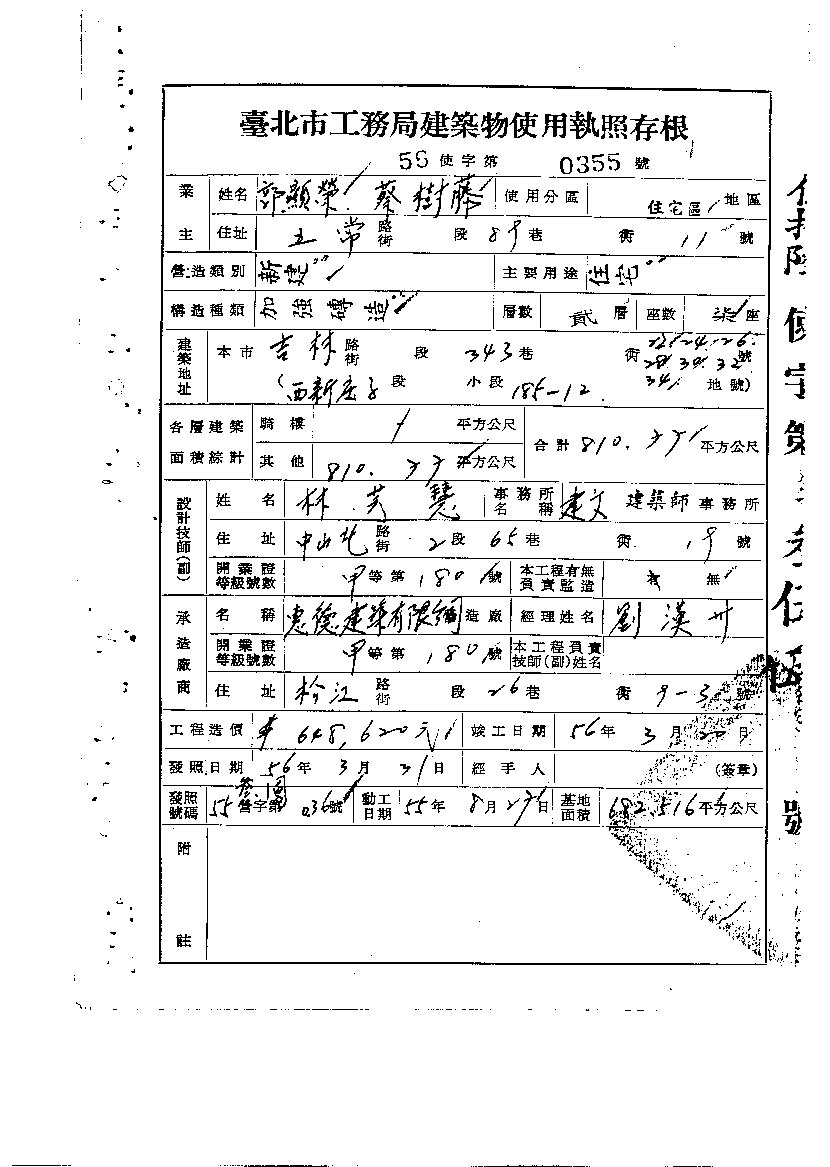 臺北市工務局建築物使用執照存根
56 使字第 0355 號
業主 姓名 郭顯榮 蔡樹藤 使用分區 住宅區 地區
住址 五常 路街 段 89 巷 衖 11 號
營造類別 新建 主要用途 住宅
構造種類 加強磚造 層數 貳 層 座數 柒 座
建築地址 本市 吉林 路街 段 343 巷 衖 24. 26. 28. 30. 32. 34. 號
(西新庄子 段 小段 185-12 地號)
各層建築面積綜計 騎樓 平方公尺 合計 810. 平方公尺
其他 810. 平方公尺
設計技師(副) 姓名 林 慧 事務所名稱 建文 建築師 事務所
住址 中山北 路街 2 段 65 巷 衖 19 號
開業證等級號數 甲 等第 180 號 本工程有無負責監造 有 無
承造廠商 名稱 惠德建築有限 造廠 經理姓名 劉漢卅
開業證等級號數 甲 等第 180 號 本工程負責技師(副)姓名
住址 松江 路街 段 26 巷 衖 9-3 號
工程造價 648,620元 竣工日期 56 年 3 月 20 日
發照日期 56 年 3 月 31 日 經手人 (簽章)
發照號碼 55 營字第 036 號 動工日期 55 年 8 月 27 日 基地面積 682.516 平方公尺
附註
使字第
號